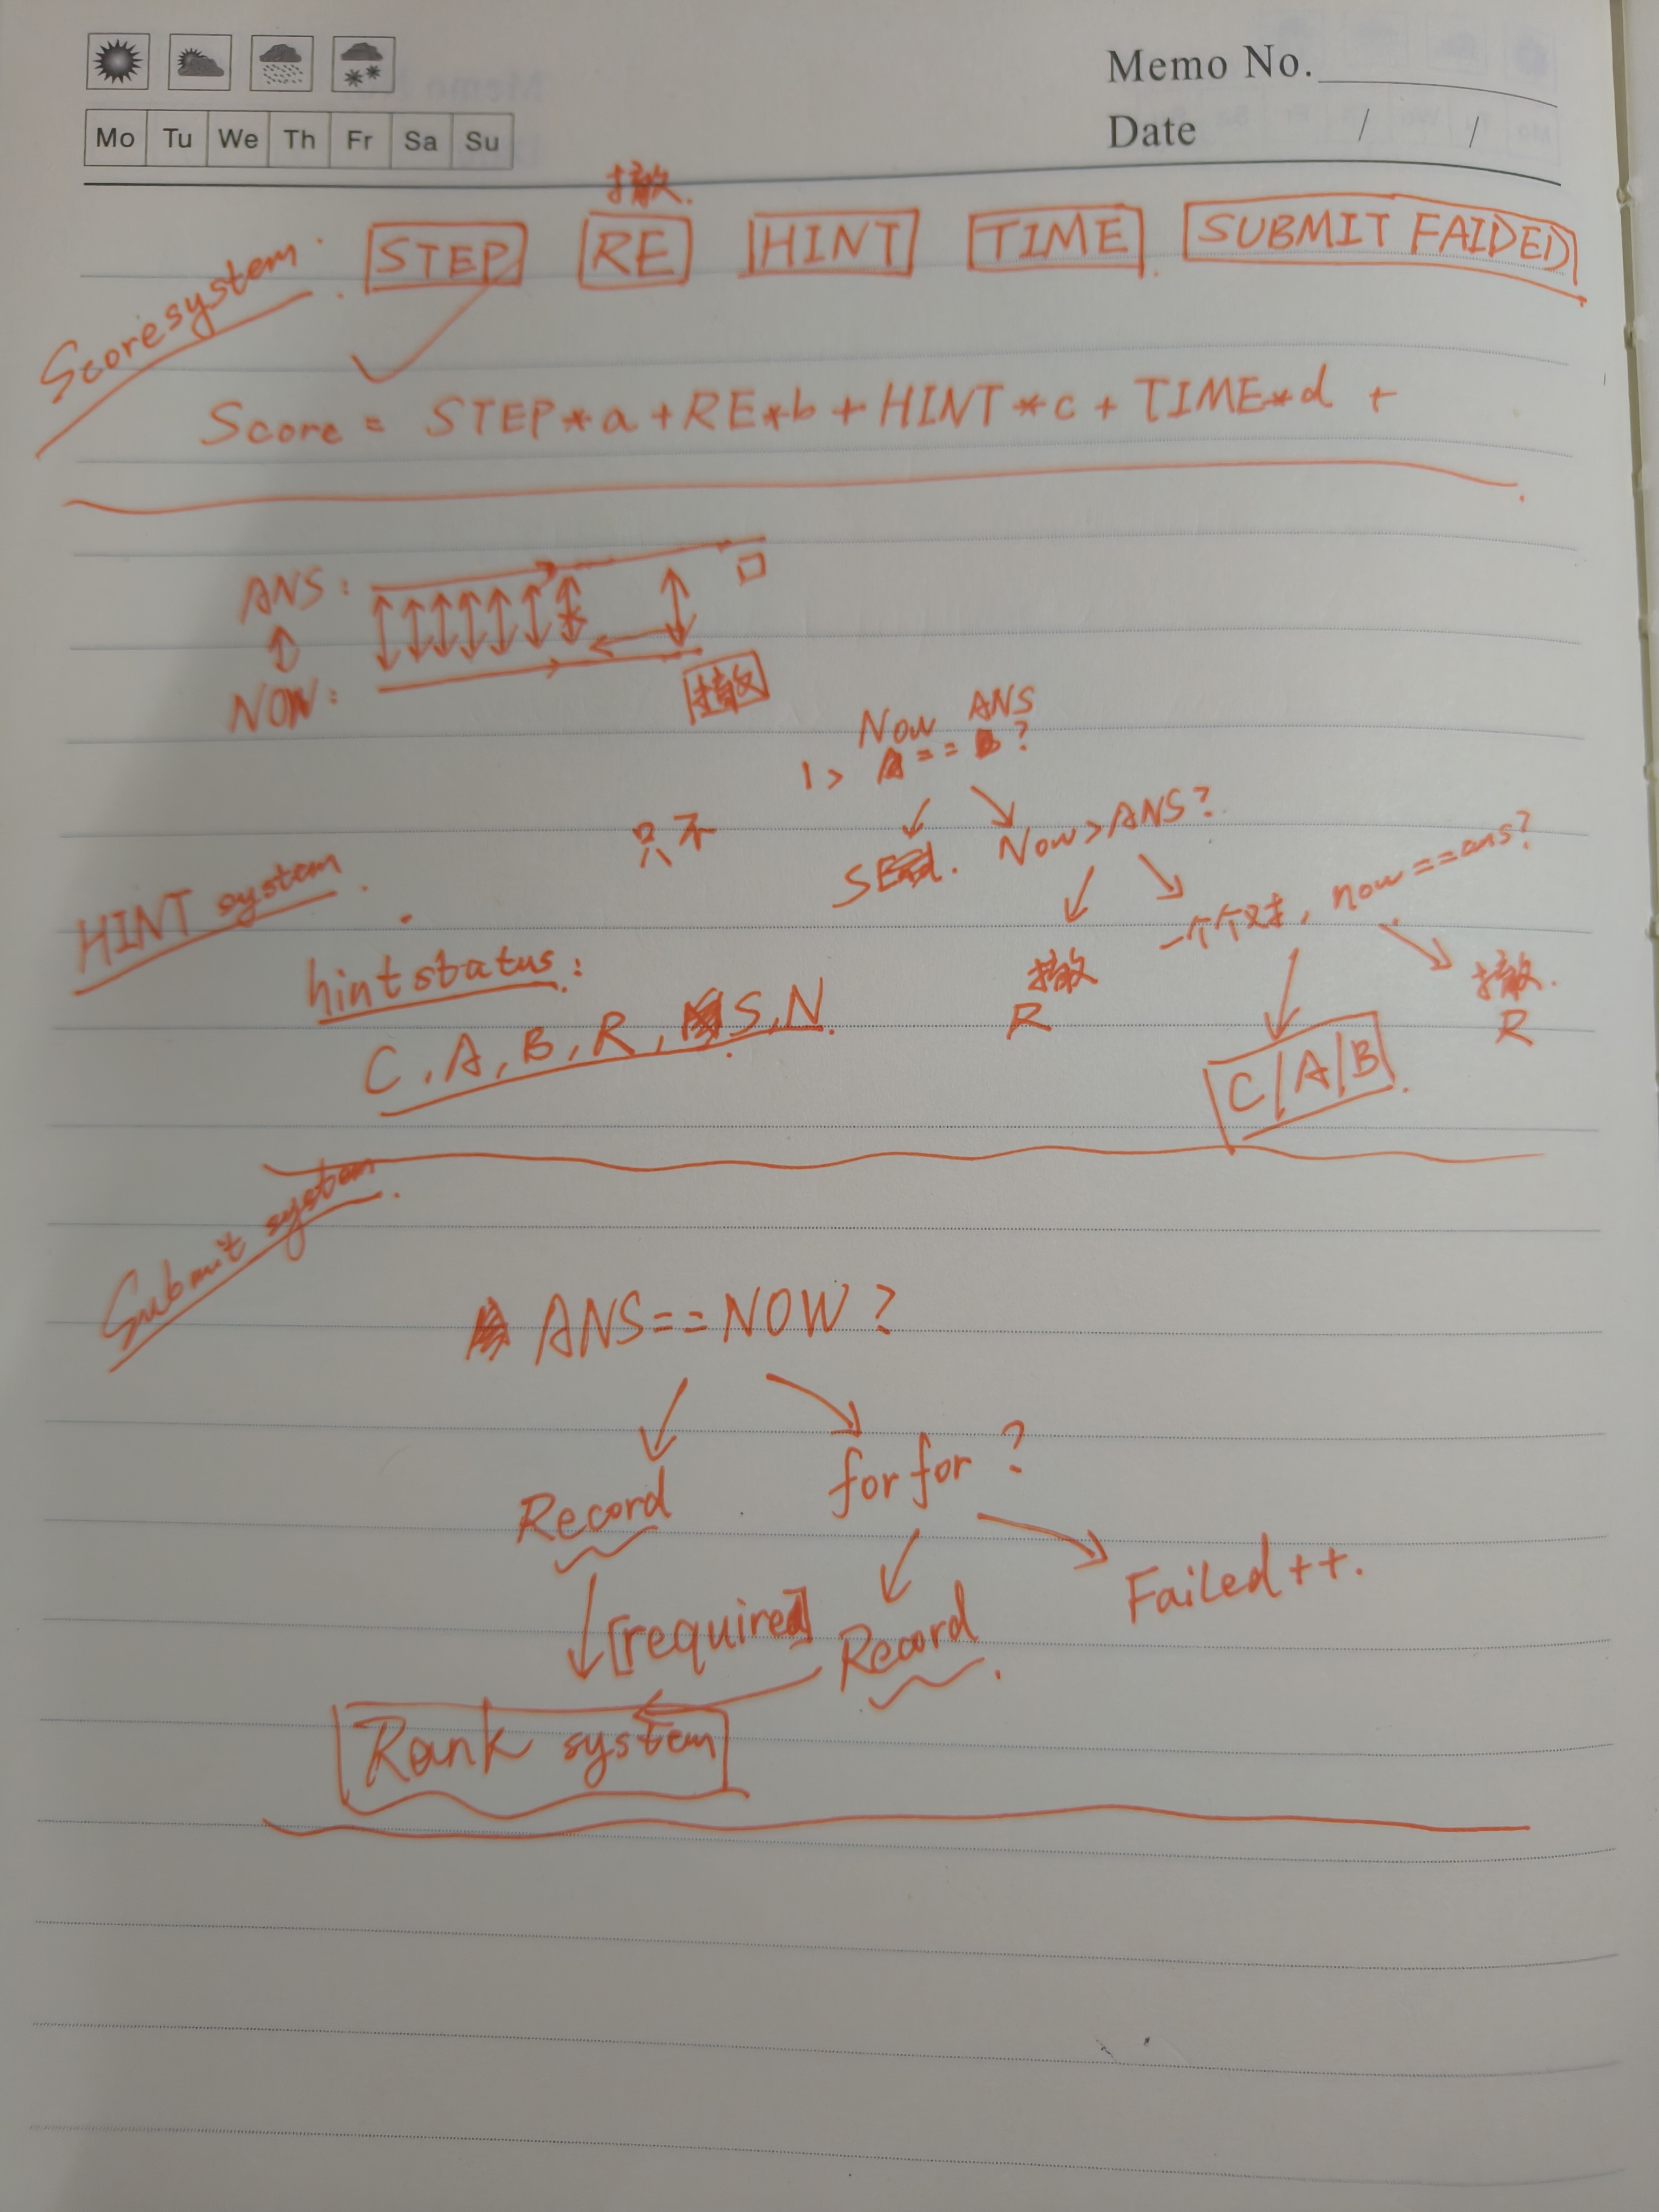 Memo No.
Mo Tu We Th Fr Sa Su
Date / /
撤.
Score system.
STEP RE HINT TIME SUBMIT FAIDED
Score = STEP*a + RE*b + HINT*c + TIME*d +
ANS:
NOW:
撤
Now ANS
1> A == B ?
只不
Now > ANS?
一个个对, now == ans?
HINT system.
hint status:
撤
R
撤.
R
C, A, B, R, S, N.
C/A/B.
Submit system.
ANS == NOW ?
Record
for for ?
Failed ++.
[required]
Record.
Rank system